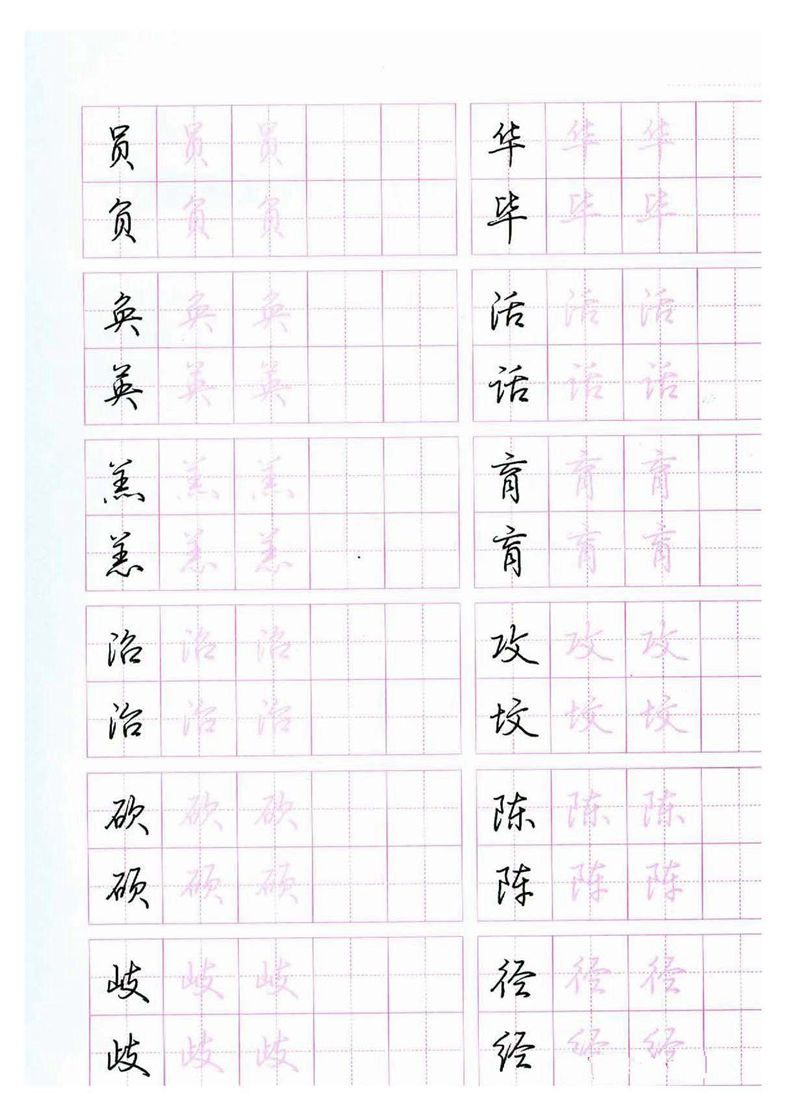 员 员 员 华 华 华
负 负 负 毕 毕 毕
奂 奂 奂 活 活 活
英 英 英 话 话 话
羔 羔 羔 育 育 育
恙 恙 恙 肓 肓 肓
攻 攻 攻
治 治 治 坟 坟 坟
砍 砍 砍 陈 陈 陈
硕 硕 硕 阵 阵 阵
岐 岐 岐 径 径 径
歧 歧 歧 经 经 经